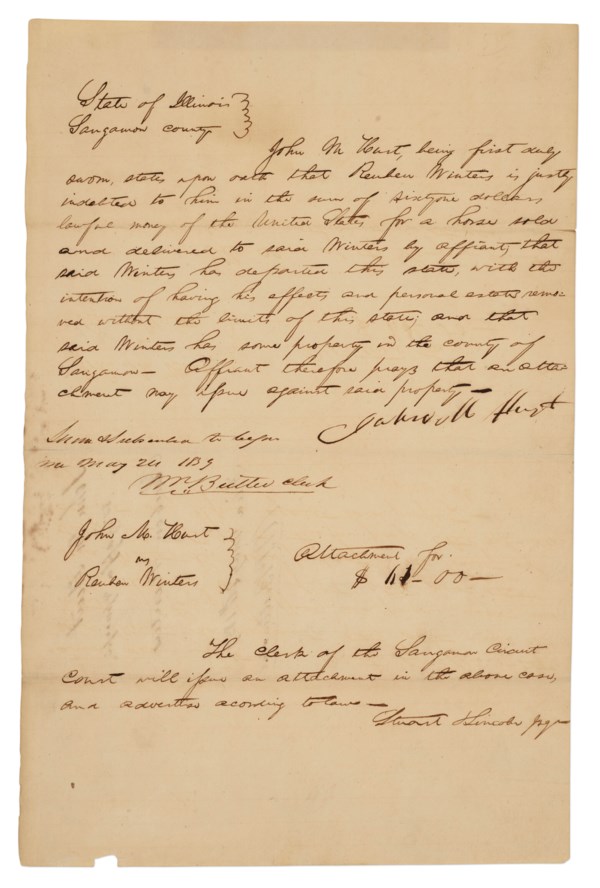 State of Illinois
Sangamon county
John M Hurt, being first duly
sworn, states upon oath that Reuben Winters is justly
indebted to him in the sum of sixtyone dollars
lawful money of the United States for a horse sold
and delivered to said Winters by affiant, that
said Winters has departed this state, with the
intention of having his effects and personal estate remo-
ved without the limits of this state, and that
said Winters has some property in the county of
Sangamon— Affiant therefore prays that an atta-
chment may issue against said property—
John M Hurt
Sworn & Subscribed to before
me May 24 1839
Wm Butler clerk
John M. Hurt
vs
Reuben Winters
Attachment for
$ 61-00—
The clerk of the Sangamon Circuit
Court will issue an attachment in the above case,
and advertise acording to law—
Stuart & Lincoln pqr